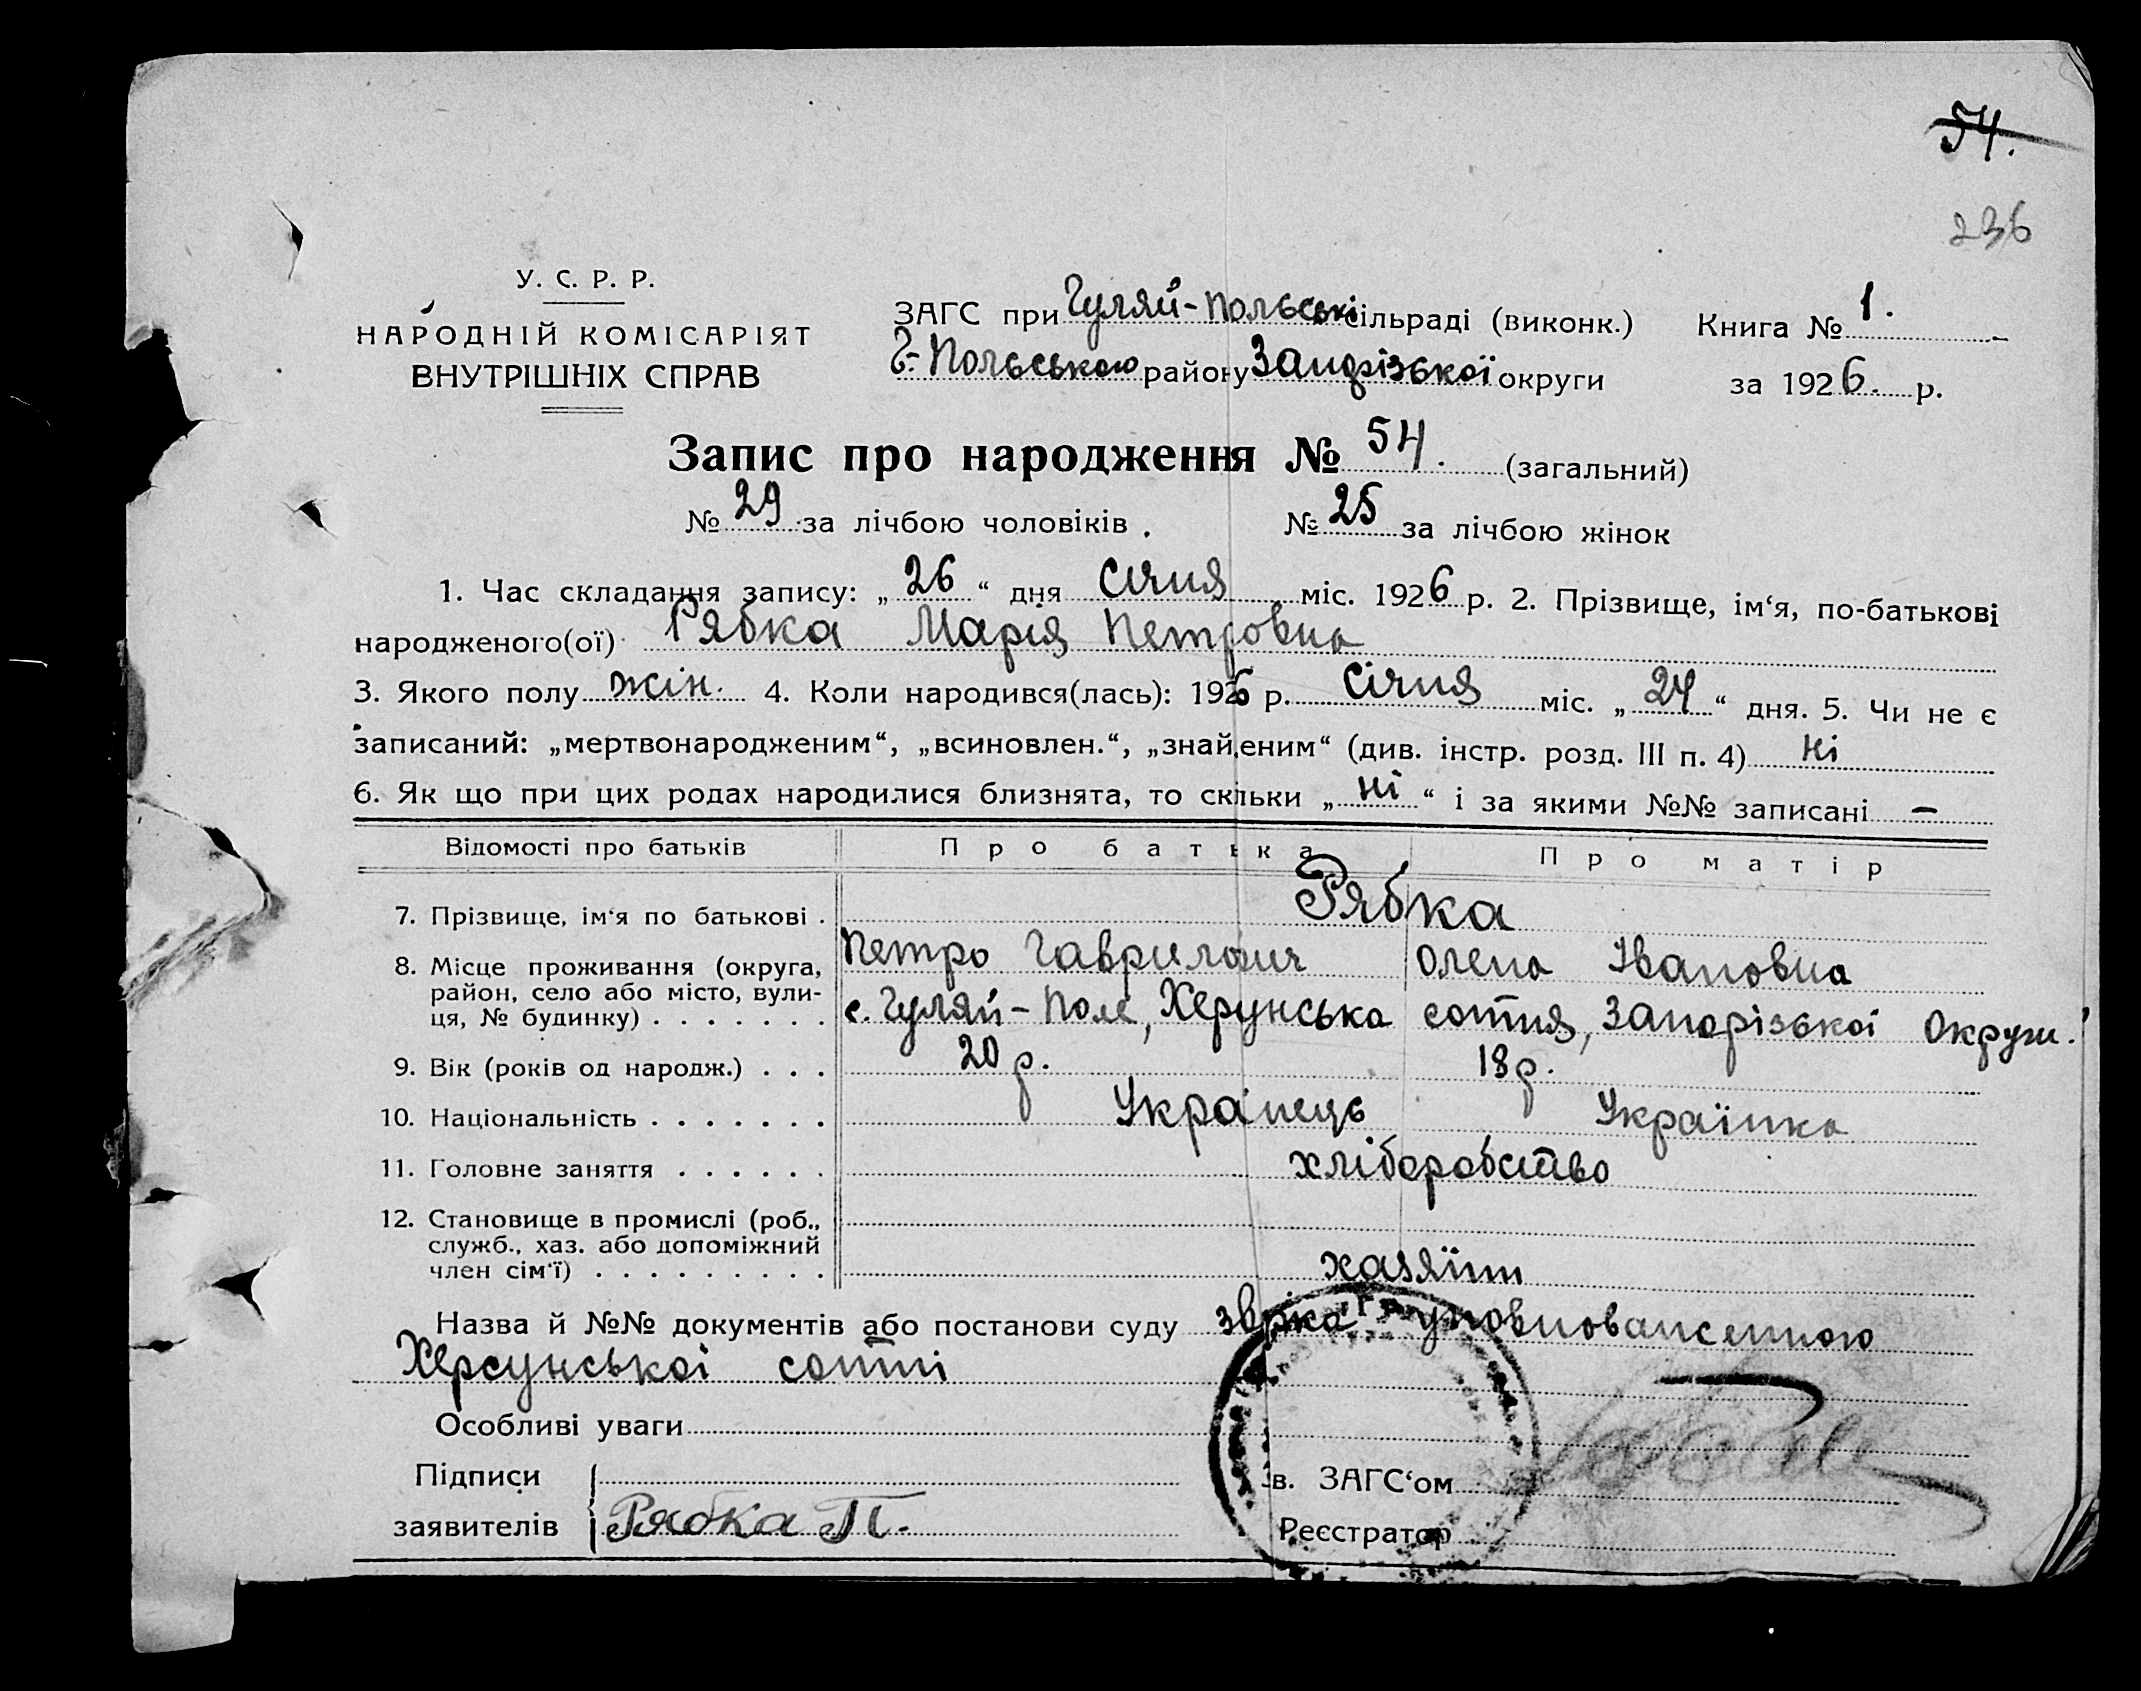 54.
236
У. С. Р. Р.
НАРОДНІЙ КОМІСАРІЯТ
ВНУТРІШНІХ СПРАВ
ЗАГС при Гуляй-Польські сільраді (виконк.) Книга № 1.
Г-Польського району Запорізької округи за 1926. р.
Запис про народження № 54. (загальний)
№ 29 за лічбою чоловіків . № 25 за лічбою жінок
1. Час складання запису: „ 26 “ дня січня міс. 1926 р. 2. Прізвище, ім‘я, по-батькові
народженого(ої) Рябка Марія Петровна
3. Якого полу жін. 4. Коли народився(лась): 1926 р. січня міс. „ 24 “ дня. 5. Чи не є
записаний: „мертвонародженим“, „всиновлен.“, „знайденим“ (див. інстр. розд. III п. 4) ні
6. Як що при цих родах народилися близнята, то скільки „ ні “ і за якими №№ записані —
Відомості про батьків Про батька Про матір
7. Прізвище, ім‘я по батькові . Рябка
Петро Гаврилович Олена Івановна
8. Місце проживання (округа,
район, село або місто, вули-
ця, № будинку) . . . . . . . с. Гуляй-Поле, Херсунська сотня, Запорізької Округи.
9. Вік (років од народж.) . . . 20 р. 18 р.
10. Національність . . . . . . . Українець Українка
11. Головне заняття . . . . . . хліборобство
12. Становище в промислі (роб.,
служб., хаз. або допоміжний
член сім‘ї) . . . . . . . . . хазяїни
Назва й №№ документів або постанови суду
Херсунської сотні
Особливі уваги
Підписи
заявителів Рябка П.
Зв. ЗАГС‘ом
Реєстратор